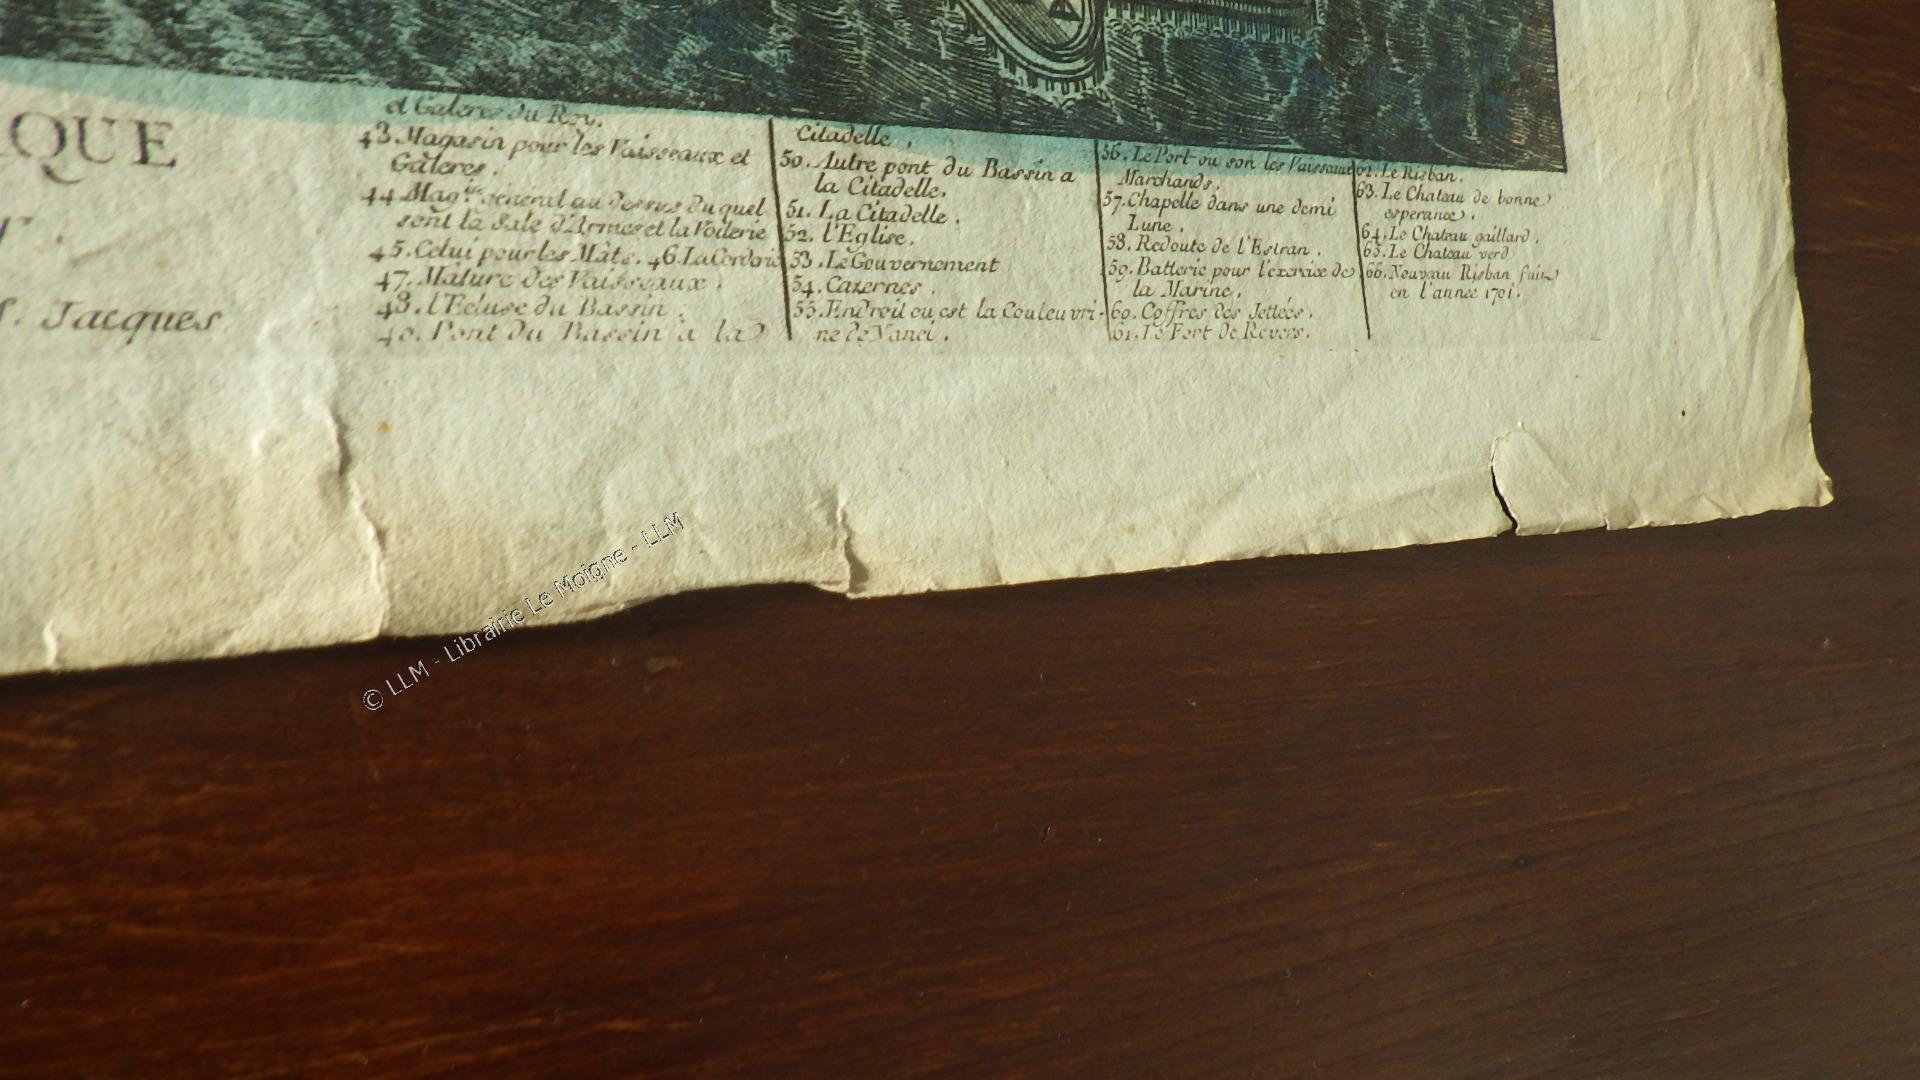 QUE
S. Jacques
et Galeres du Roy.
43. Magasin pour les Vaisseaux et
Galeres.
44. Mag.in general au dessus du quel
sont la Sale d'Armes et la Voilerie
45. Celui pour les Mâts. 46. La Corderie
47. Mâture des Vaisseaux.
48. l'Ecluse du Bassin.
49. Pont du Bassin a la
Citadelle.
50. Autre pont du Bassin a
la Citadelle.
51. La Citadelle.
52. l'Eglise.
53. Le Gouvernement
54. Cazernes.
55. Endroit ou est la Couleuvri-
ne de Nanci.
56. Le Port ou son les Vaisseaux
Marchands.
57. Chapelle dans une demi
Lune.
58. Redoute de l'Estran.
59. Batterie pour l'exercice de
la Marine.
60. Coffres des Jettées.
61. Le Fort de Revers.
62. Le Risban.
63. Le Chateau de bonne
esperance.
64. Le Chateau gaillard.
65. Le Chateau verd
66. Nouveau Risban fait
en l'année 1701.
© LLM - Librairie Le Moigne - LLM